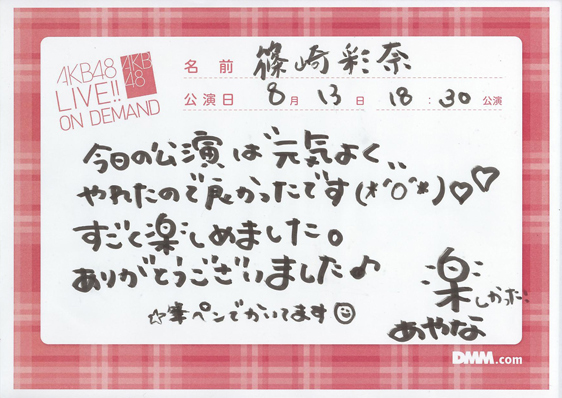 AKB48
LIVE!!
ON DEMAND
AKB
48
名前 篠崎彩奈
公演日 8月13日 18:30公演
今日の公演は"元気よく"
やれたので良かったです(*^O^*)♡♡
すごく楽しめました。
ありがとうございました♪
☆筆ペンでかいてます☺
楽しかった!
あやな
DMM.com